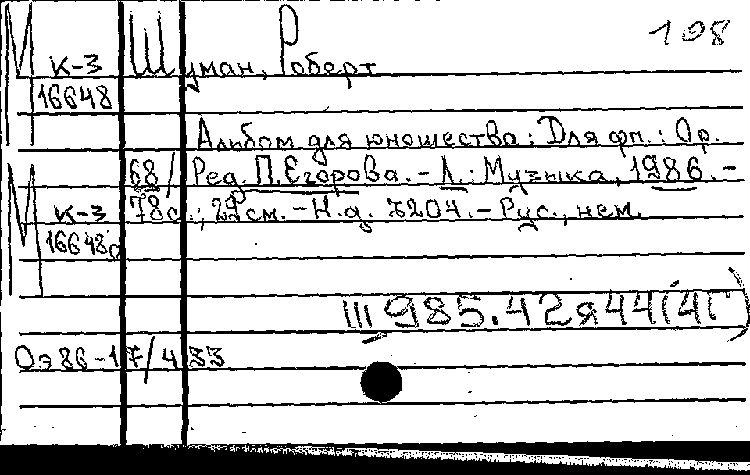 108
М к-3 Шуман, Роберт
16648
Альбом для юношества : Для фп. : Ор.
68 / Ред. П. Егорова. - Л. : Музыка, 1986. -
М к-3 78 с.; 29 см. - Н. д. 3204. - Рус., нем.
16648а
III 985.42я44(4Г)
Оэ 86-17/433